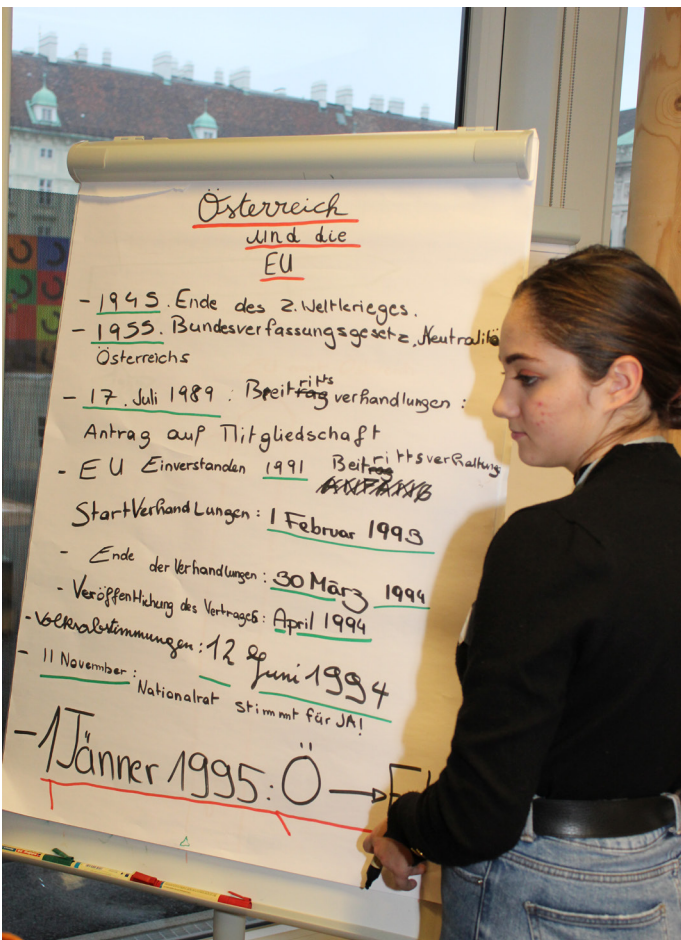 Österreich
und die
EU
- 1945. Ende des 2. Weltkrieges.
- 1955. Bundesverfassungsgesetz, Neutralitä
Österreichs
- 17. Juli 1989 : Beitrittsverhandlungen :
Antrag auf Mitgliedschaft
- EU Einverstanden 1991 Beitrittsverhaltung
Startverhandlungen: 1 Februar 1993
- Ende der Verhandlungen: 30 März 1994
- Veröffentlichung des Vertrages: April 1994
- Volksabstimmungen: 12 Juni 1994
- 11 November: Nationalrat stimmt für JA!
- 1 Jänner 1995: Ö → E